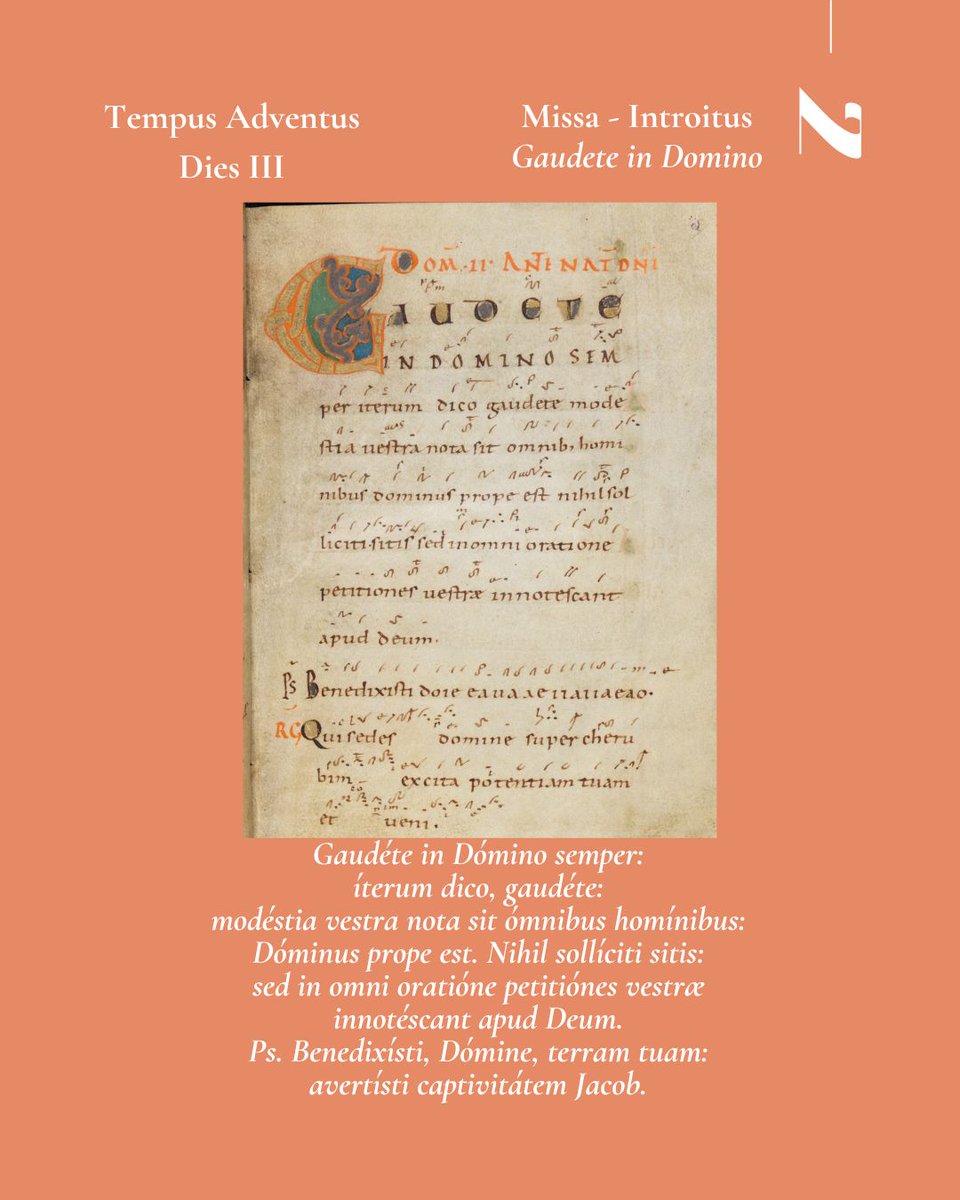 Tempus Adventus
Dies III
Missa - Introitus
Gaudete in Domino
2
DOM̅ · II · ANTE NAT̅ DN̅I
GAUDETE
IN DOMINO SEM
per iterum dico gaudete mode
stia vestra nota sit omnib; homi
nibus dominus prope est nihil sol
liciti sitis sed in omni oratione
petitiones vestræ innotescant
apud deum.
Ps Benedixisti
RG Qui sedes domine super cheru
bim excita potentiam tuam
et veni.
Gaudéte in Dómino semper:
íterum dico, gaudéte:
modéstia vestra nota sit ómnibus homínibus:
Dóminus prope est. Nihil sollíciti sitis:
sed in omni oratióne petitiónes vestræ
innotéscant apud Deum.
Ps. Benedixísti, Dómine, terram tuam:
avertísti captivitátem Jacob.